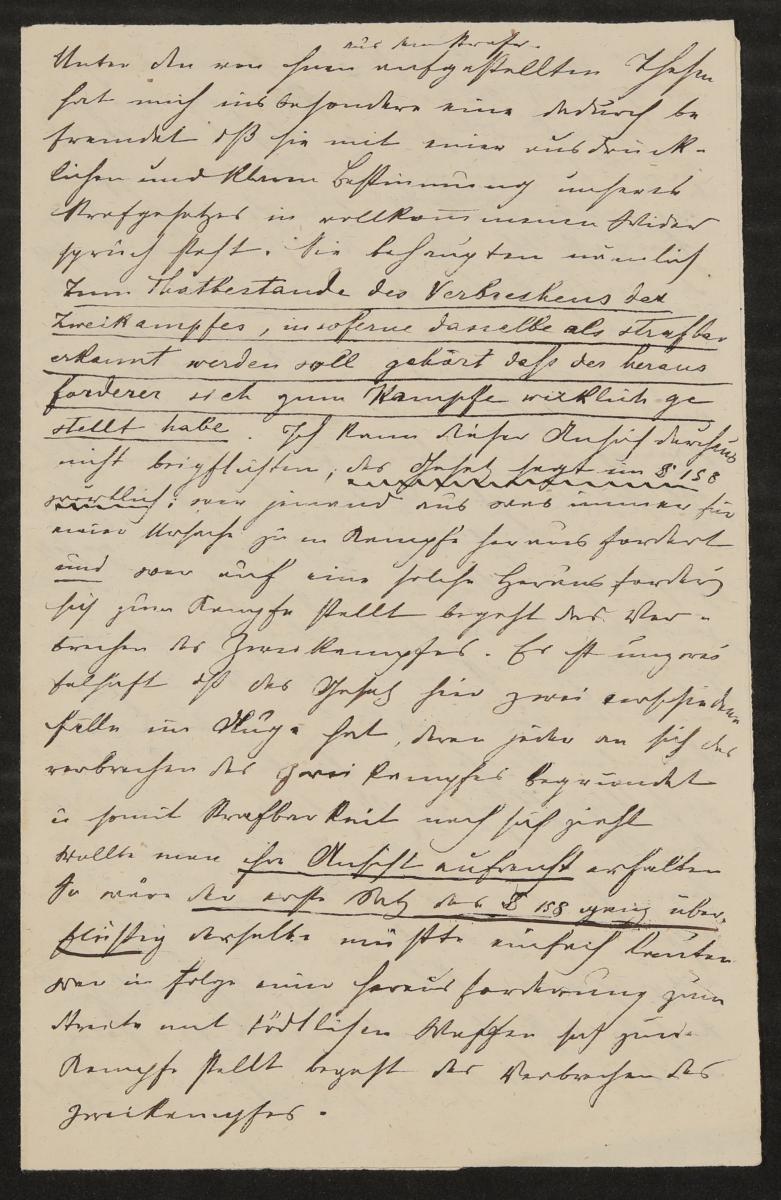 aus dem Strafr.
Unter den von ihnen aufgestellten Thesen
hat mich insbesondere eine dadurch be
fremdet dß sie mit einer ausdrück-
lichen und klaren Bestimmung unseres
Strafgesetzes in vollkommenen Wider
spruch steht. Sie behaupten nämlich
zum Thatbestande des Verbrechens des
Zweikampfes, insoferne dasselbe als strafbar
erkannt werden soll gehört daß der heraus
forderer sich zum Kampfe wirklich ge
stellt habe. Ich kann dieser Ansicht durchaus
nicht beipflichten, das Gesetz sagt im § 158
wörtlich: wer jemand aus was immer für
einer Ursache zum Kampfe herausfordert
und wer auf eine solche Herausforderg
sich zum Kampfe stellt begeht das Ver-
brechen des Zweikampfes. Es ist unzwei
felhaft dß das Gesetz hier zwei verschiedene
Fälle im Auge hat, deren jeder an sich das
verbrechen des Zweikampfes begründet
u somit Strafbarkeit nach sich zieht
wollte man ihre Ansicht aufrecht erhalten
So wäre der erste Satz des § 158 ganz über-
flüssig derselbe müßte einfach lauten
wer in folge einer herausforderung zum
Streite mit tödtlichen Waffen sich zum
Kampfe stellt begeht das Verbrechen des
Zweikampfes.